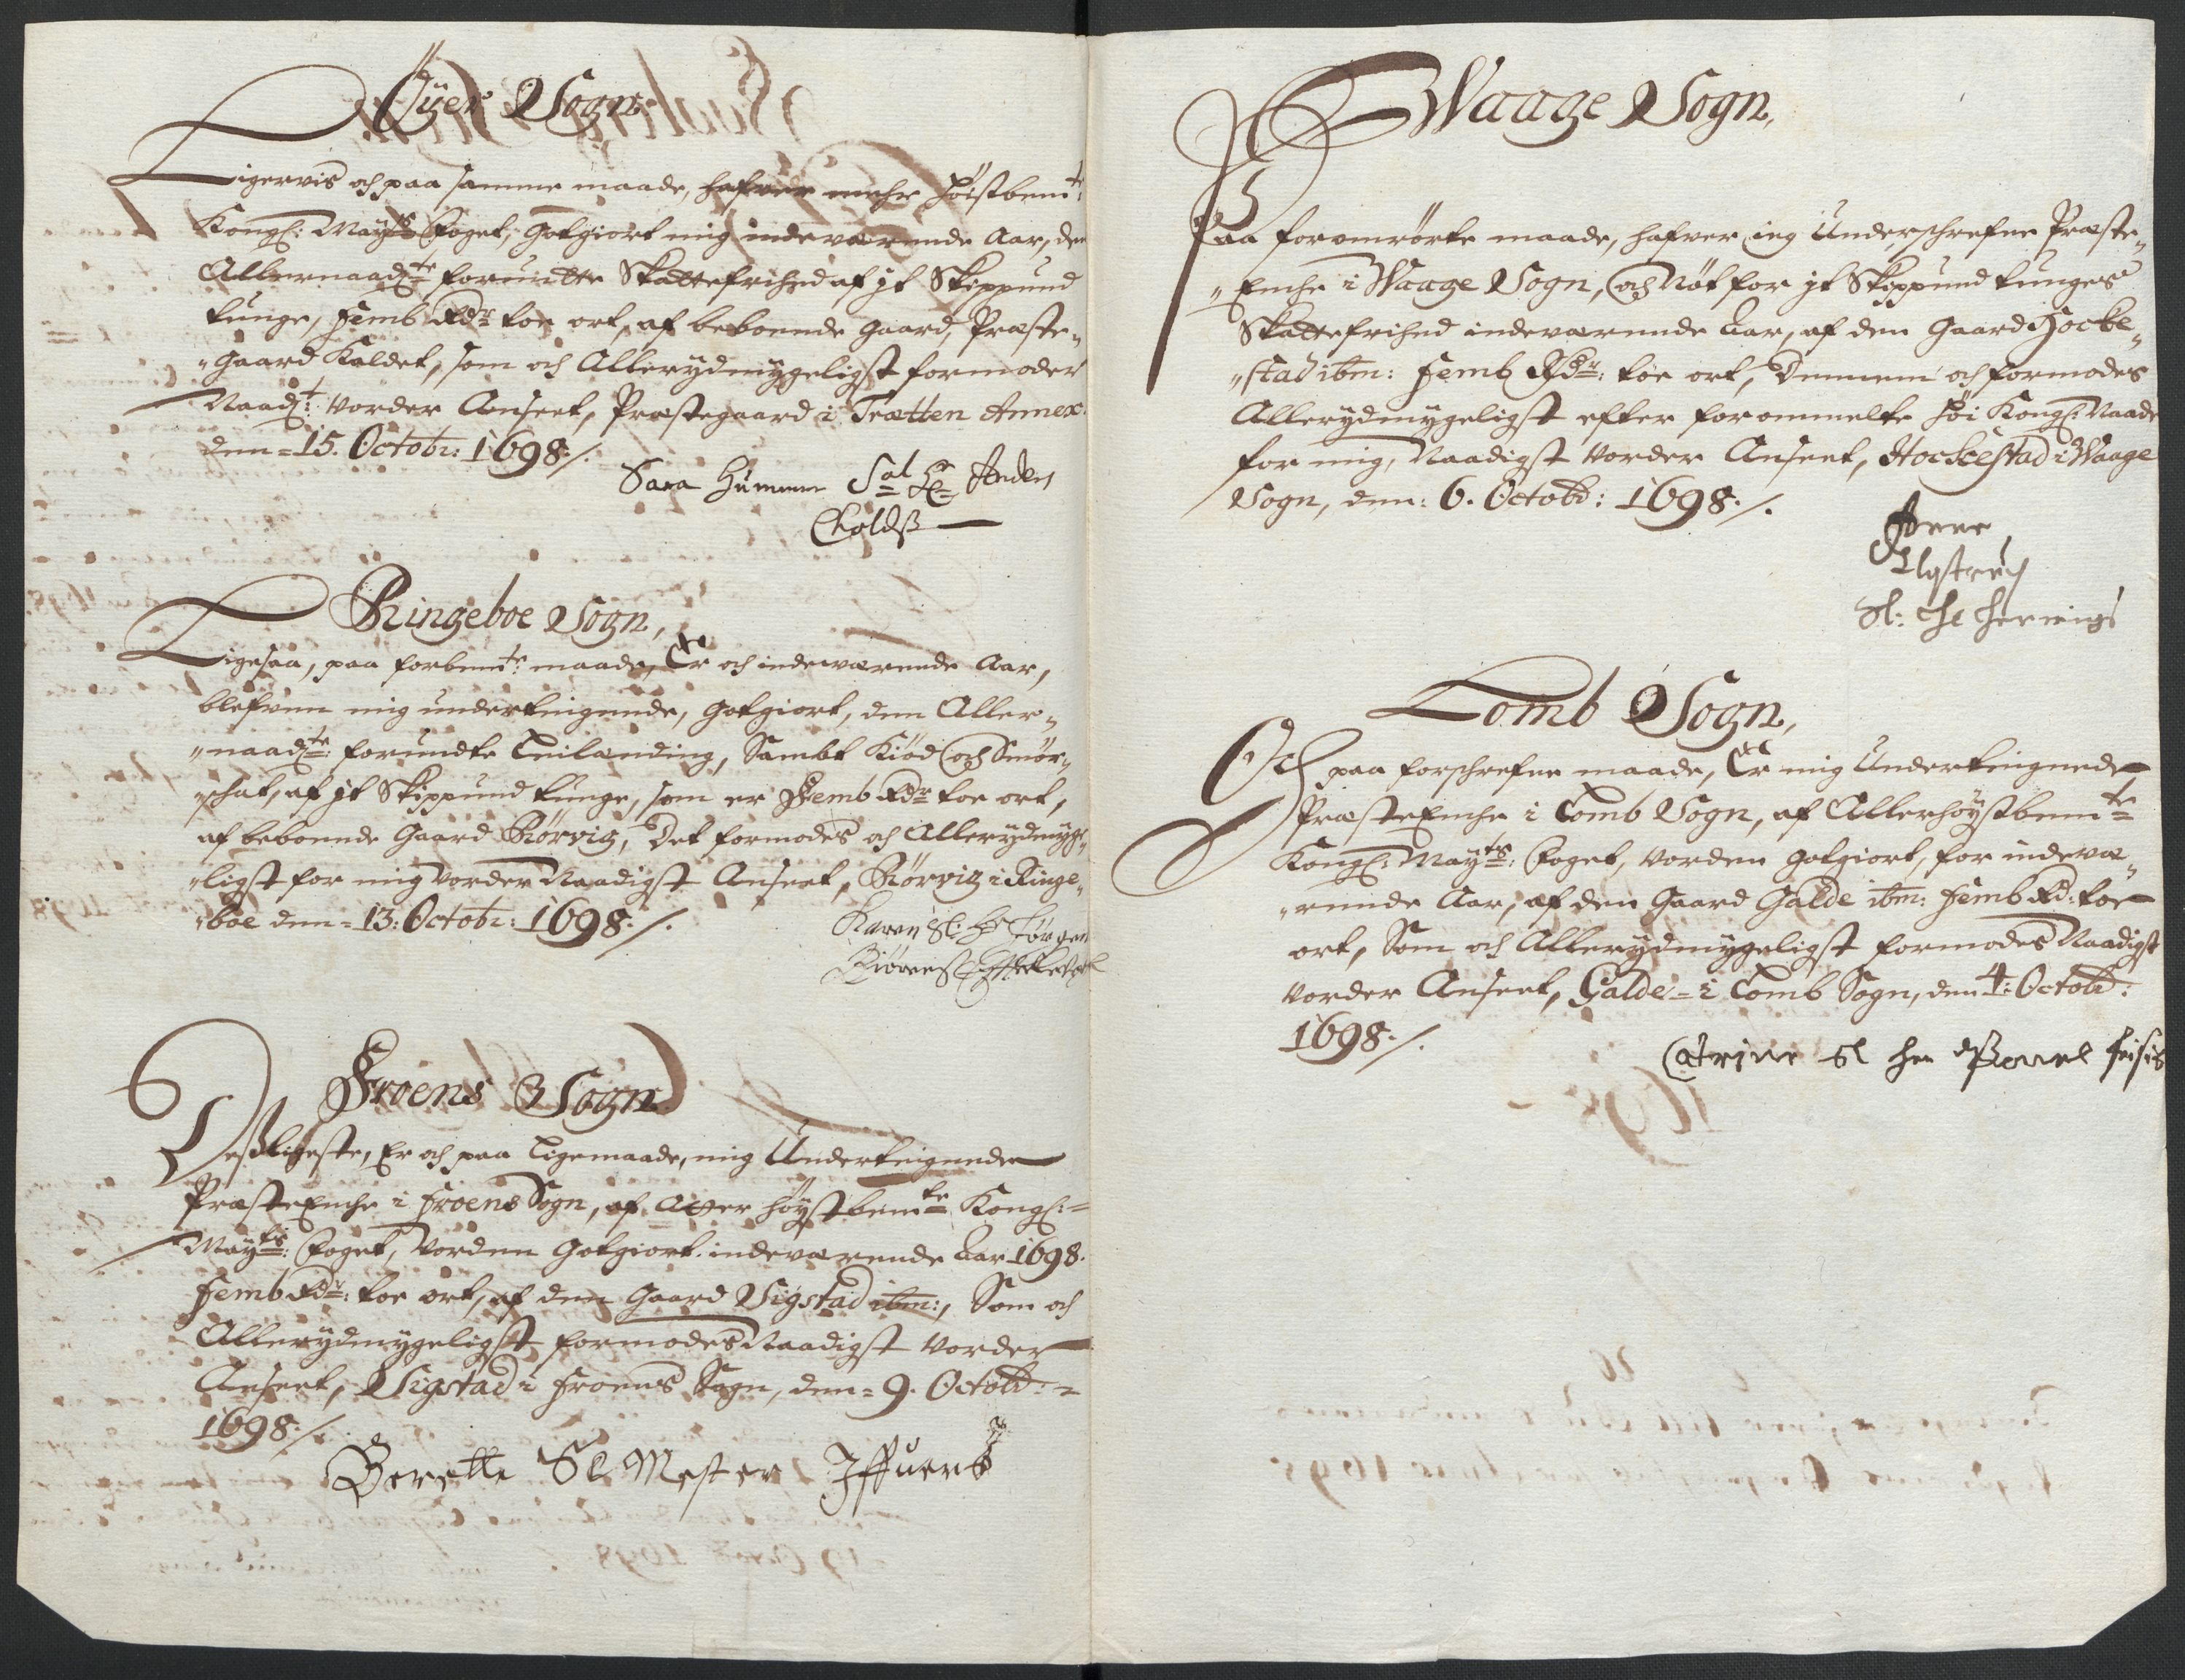 Öÿer Sogn
Ligervis och paa samme maade, hafver mehr höistbemte:
Kongl: Mayts Foget, gotgiort mig indeværende Aar, den
Allernaadte forundte Skattefrihed af jt Skippund
tunge, femb Rdr toe ort, af beboende gaard, Præste„
„gaard Kaldet, som och Allerydmygeligst formoder
Naadt: Vorder Anseet, Præstegaard i Trætten Annex
den = 15. Octobr: 1698 ./.
Sara Hummer Sal Hr Anders
Choldß
Ringeboe Sogn,
Ligesaa, paa forbemte: maade, Er och indeværende Aar,
blefven mig undertegnende, gotgiort, den Aller„
„naadte: forundte Leilending, Sambt Kiöd och Smör„
„schat, af jt Skippund tunge, som er Femb Rdr toe ort,
af beboende Gaard Rörvig, Det formodes och Allerydmyge„
„ligst for mig Vorder Naadigst Anseet, Rörvig i Ringe„
„boe den = 13: Octobr: 1698 ./.
Karen Sl: Hr Jörgen
Biörnß Effterlefvel
Froens Sogn
Deßligeste, Er och paa Ligemaade, mig Undertegnende
PræsteEnche i Froens Sogn, af Aller höystbemte Kongl: =
Mayts: Foget, Vorden Gotgiort indeværende Aar 1698.
Femb Rdr: toe ort, af den Gaard Sigstad ibm:, Som och
Allerydmygeligst formodes Naadigst Vorder
Anseet, Sigstad i Froens Sogn, den = 9. Octobr: =
1698 ./.
Berette Sl Mester Iffuers
Waage Sogn,
Paa foromrörte maade, hafver ieg Underschrefne Præste„
„Enche i Waage Sogn, och Nöt for jt Skippund tunges
Skattefrihed indeværende Aar, af den Gaard Hocke„
„stad ibm: Femb Rdr: toe ort, Dennem och formodes
Allerydmygeligst efter forommelte Höi Kongl: Naade
for mig, Naadigst Vorder Anseet, Hockestad i Waage
Sogn, den: 6. Octobr: 1698 ./.
Anne
Ugstrup
Sl: Hr Hennings
Lomb Sogn,
Och paa forschrefne maade, Er mig Undertegnede
PræsteEnche i Lomb Sogn, af Allerhöystbemte
Kongl: Mayts: Foget, Vorden gotgiort, for indevæ„
„rende Aar, af den Gaard Galde ibm: Femb Rd: toe
ort, Som och Allerydmygeligst formodes Naadigst
Vorder Anseet, Galde = i Lomb Sogn, den 4: Octobr:
1698 ./.
Catrine Sl her Powel